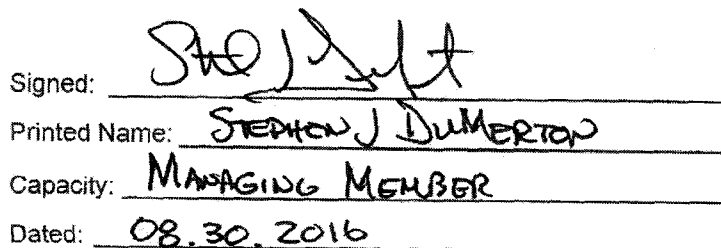 Signed:
Printed Name: STEPHEN J DUMERTON
Capacity: MANAGING MEMBER
Dated: 08.30.2016